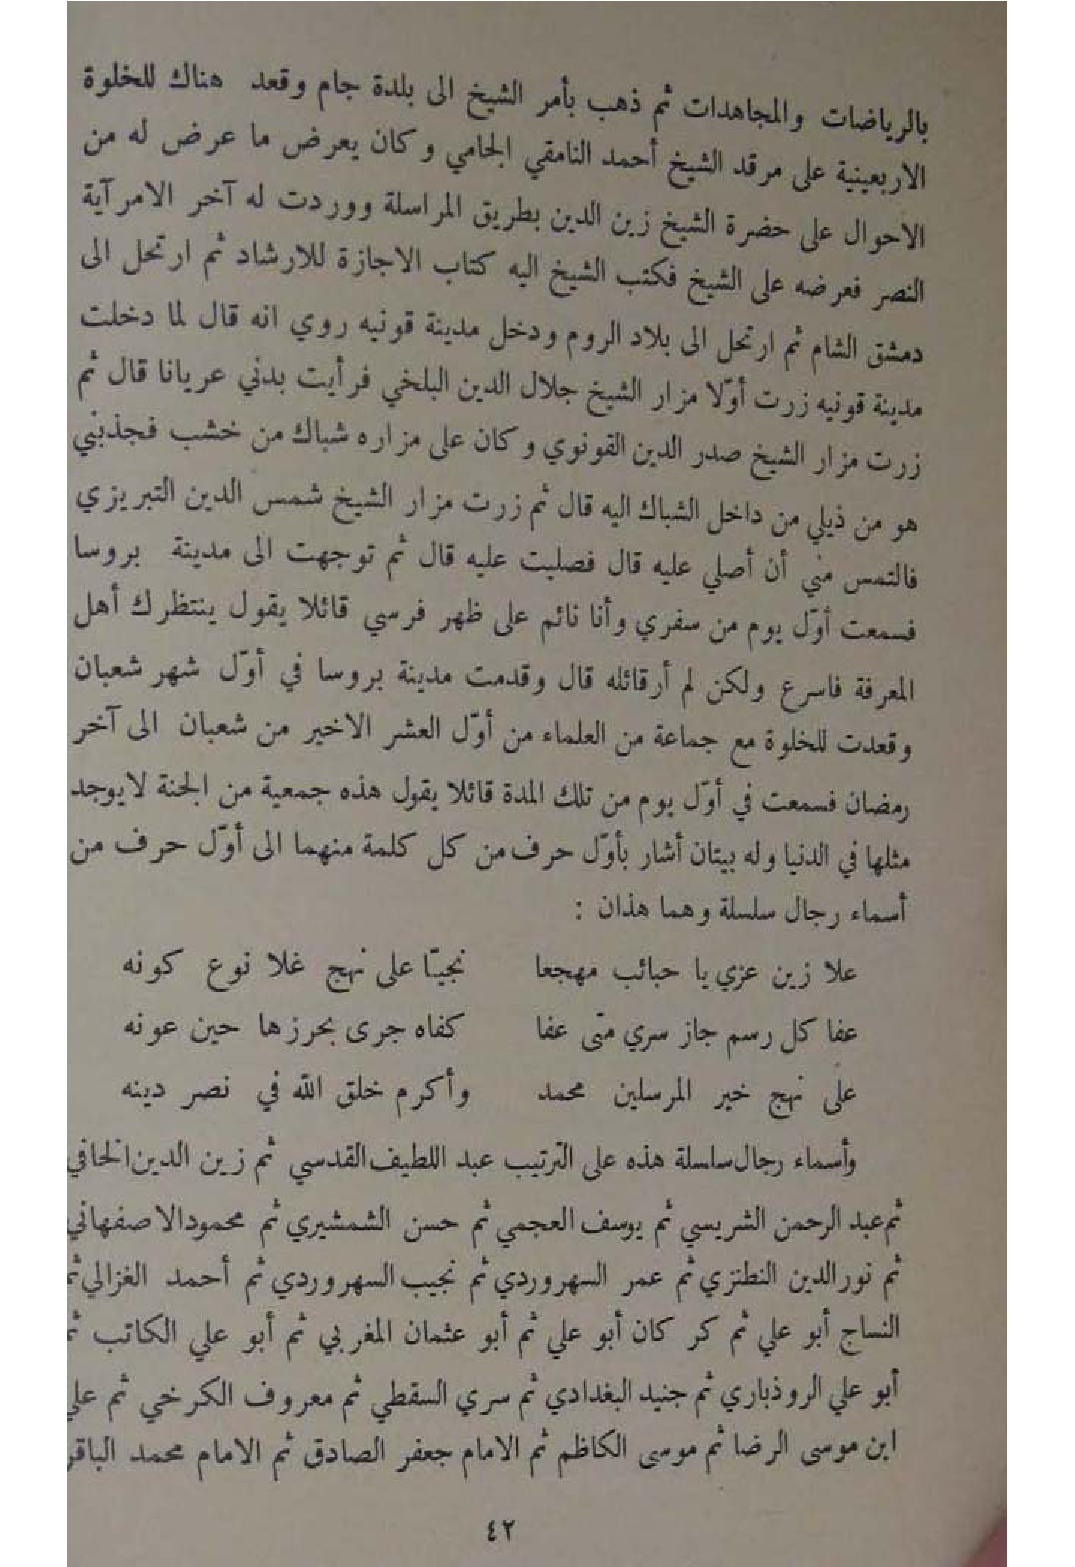 بالرياضات والمجاهدات ثم ذهب بأمر الشيخ الى بلدة جام وقعد هناك للخلوة
الاربعينية على مرقد الشيخ أحمد النامقي الجامي وكان يعرض ما عرض له من
الاحوال على حضرة الشيخ زين الدين بطريق المراسلة ووردت له آخر الامر آية
النصر فعرضه على الشيخ فكتب الشيخ اليه كتاب الاجازة للارشاد ثم ارتحل الى
دمشق الشام ثم ارتحل الى بلاد الروم ودخل مدينة قونيه روي انه قال لما دخلت
مدينة قونيه زرت أوّلا مزار الشيخ جلال الدين البلخي فرأيت بدني عريانا قال ثم
زرت مزار الشيخ صدر الدين القونوي وكان على مزاره شباك من خشب فجذبني
هو من ذيلي من داخل الشباك اليه قال ثم زرت مزار الشيخ شمس الدين التبريزي
فالتمس مني أن أصلي عليه قال فصليت عليه قال ثم توجهت الى مدينة بروسا
فسمعت أوّل يوم من سفري وأنا نائم على ظهر فرسي قائلا يقول ينتظرك أهل
المعرفة فاسرع ولكن لم أر قائله قال وقدمت مدينة بروسا في أوّل شهر شعبان
وقعدت للخلوة مع جماعة من العلماء من أوّل العشر الاخير من شعبان الى آخر
رمضان فسمعت في أوّل يوم من تلك المدة قائلا يقول هذه جمعية من الجنة لا يوجد
مثلها في الدنيا وله بيتان أشار بأوّل حرف من كل كلمة منهما الى أوّل حرف من
أسماء رجال سلسلة وهما هذان :
علا زين عزي يا حبائب مهجعا نجيبّا على نهج غلا نوع كونه
عفا كل رسم جاز سري متّى عفا كفاه جرى بحرزها حين عونه
على نهج خير المرسلين محمد وأكرم خلق الله في نصر دينه
وأسماء رجال سلسلة هذه على الترتيب عبد اللطيف القدسي ثم زين الدين الخافي
ثم عبد الرحمن الشريسي ثم يوسف العجمي ثم حسن الشمشيري ثم محمود الاصفهاني
ثم نور الدين النطنزي ثم عمر السهروردي ثم نجيب السهروردي ثم أحمد الغزالي ثم
النساج أبو علي ثم كر كان أبو علي ثم أبو عثمان المغربي ثم أبو علي الكاتب ثم
أبو علي الروذباري ثم جنيد البغدادي ثم سري السقطي ثم معروف الكرخي ثم علي
ابن موسى الرضا ثم موسى الكاظم ثم الامام جعفر الصادق ثم الامام محمد الباقر
٤٢